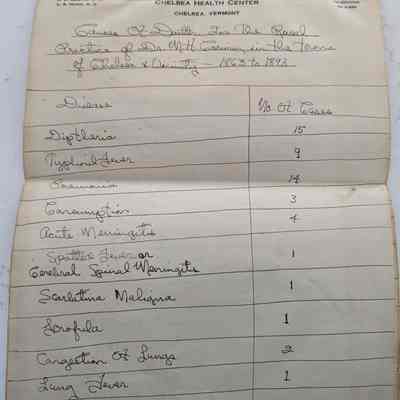 CHELSEA HEALTH CENTER
CHELSEA, VERMONT
Causes Of Death For The Rural
Practice of Dr. W.H. in the town
of Chelsea & Vicinity - 1863 to 1893
Disease No. Of Cases
Diptheria 15
Typhoid Fever 9
Pneumonia 14
Consumption 3
Acute Meningitis 4
Spotted Fever or
Cerebral Spinal Meningitis 1
Scarlatina Maligna 1
Scrofula 1
Congestion Of Lungs 2
Lung Fever 1